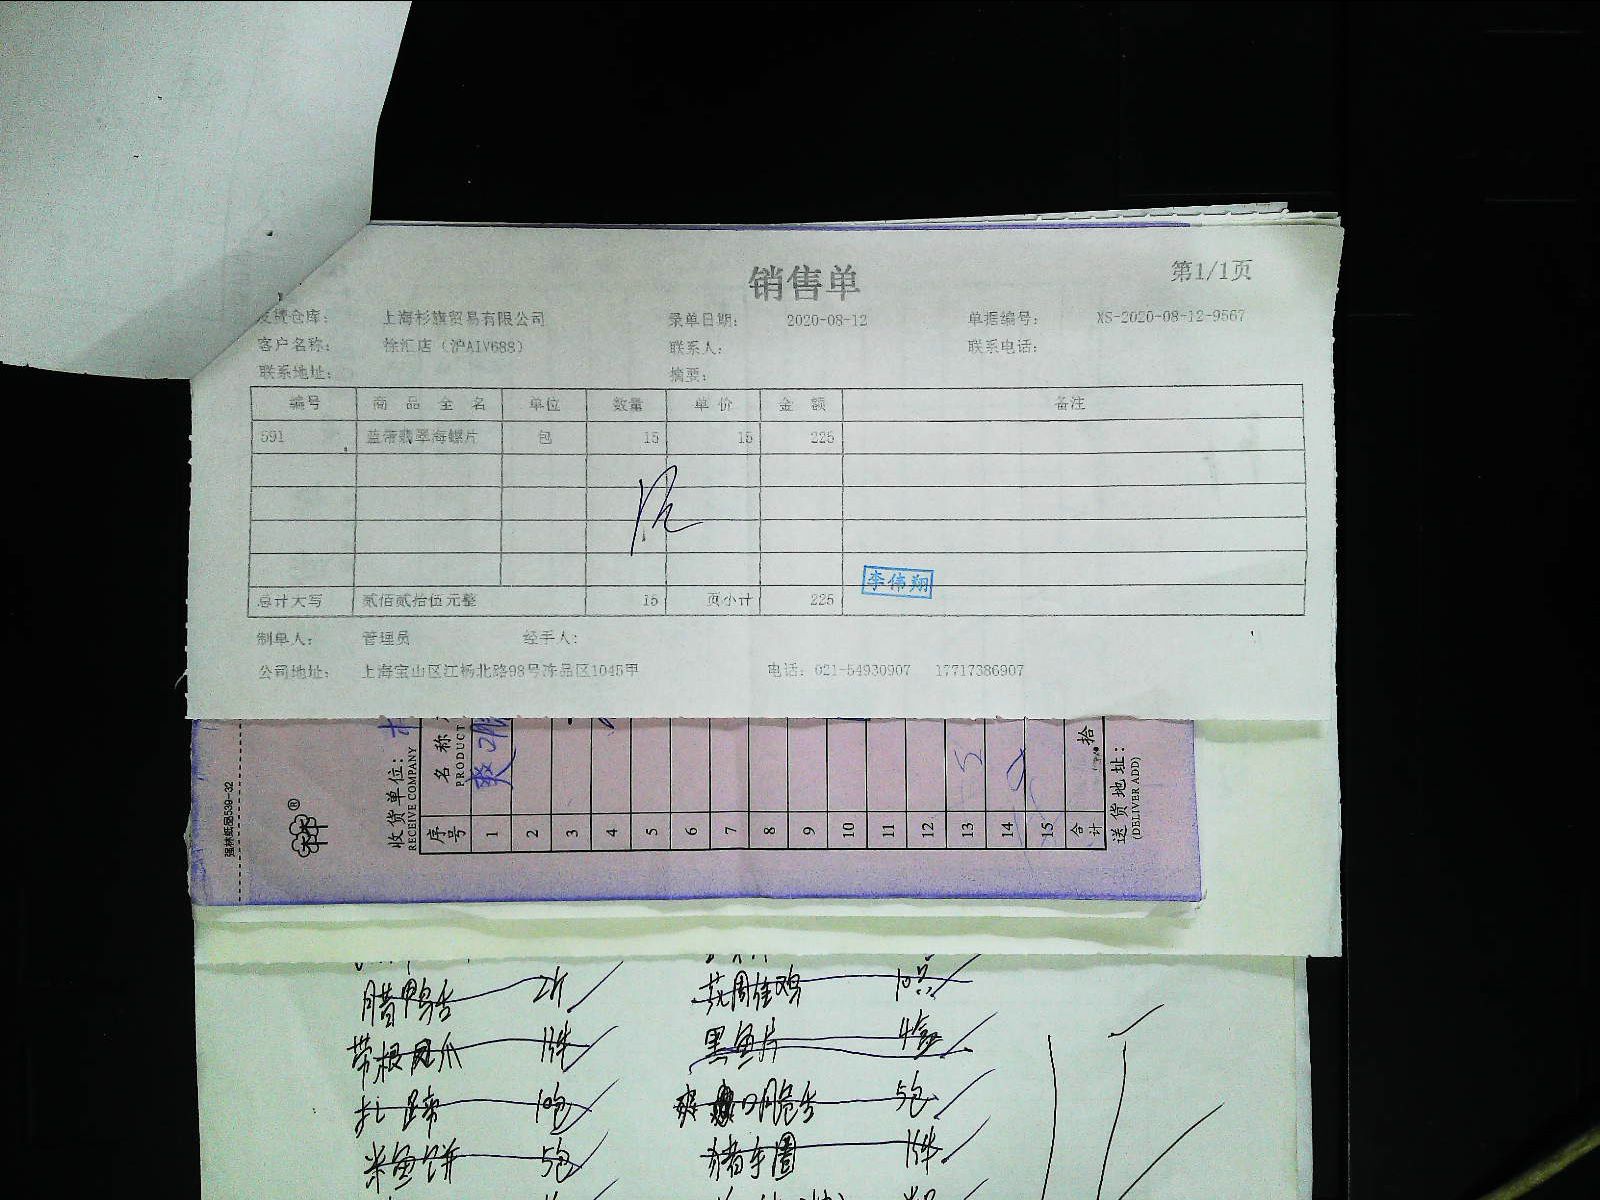 销售单
第1/1页
发货仓库： 上海杉旗贸易有限公司 录单日期： 2020-08-12 单据编号： XS-2020-08-12-9567
客户名称： 徐汇店（沪AIV688） 联系人： 联系电话：
联系地址： 摘要：
编号 商品全名 单位 数量 单价 金额 备注
591 盖帝翡翠海螺片 包 15 15 225
李伟翔
总计大写 贰佰贰拾伍元整 15 页小计 225
制单人： 管理员 经手人：
公司地址： 上海宝山区江杨北路98号冻品区1045甲 电话：021-54930907 17717386907
强林纸品539-32
林®
收货单位：
RECEIVE COMPANY
序号 名称
PRODUCT
1 爽口
2
3
4
5
6
7
8
9
10
11
12
13
14
15
合计 拾
送货地址：
(DELIVER ADD)
腊鸭舌 2斤 10只
带根凤爪 1件 黑鱼片 4盒
扎蹄 10包 爽口脆舌 5包
米鱼饼 5包 1件